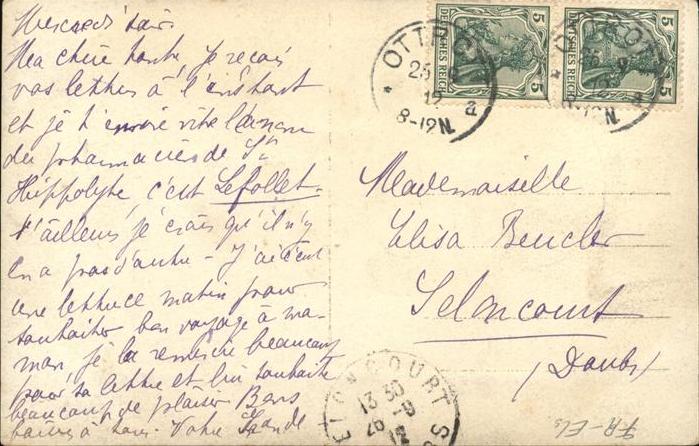 Mercredi soir
Ma chère tante, je reçois
vos lettres à l'instant
et je t'envoie vite le nom
du pharmacien de St
Hippolyte, c'est Lefollet.
d'ailleurs je crois qu'il n'y
en a pas d'autre - J'ai écrit
une lettre ce matin pour
souhaiter bon voyage à ma-
man, je la remercie beaucoup
pour sa lettre et lui souhaite
beaucoup de plaisir Bons
baisers à tous. Votre
Mademoiselle
Elisa Beucler
Seloncourt
(Doubs)
OTTR
25
12
8-12N.
a
5
DEUTSCHES REICH
5
DEUTSCHES REICH
8-12N.
a
ELONCOURT
13 30
26
FR-Els.